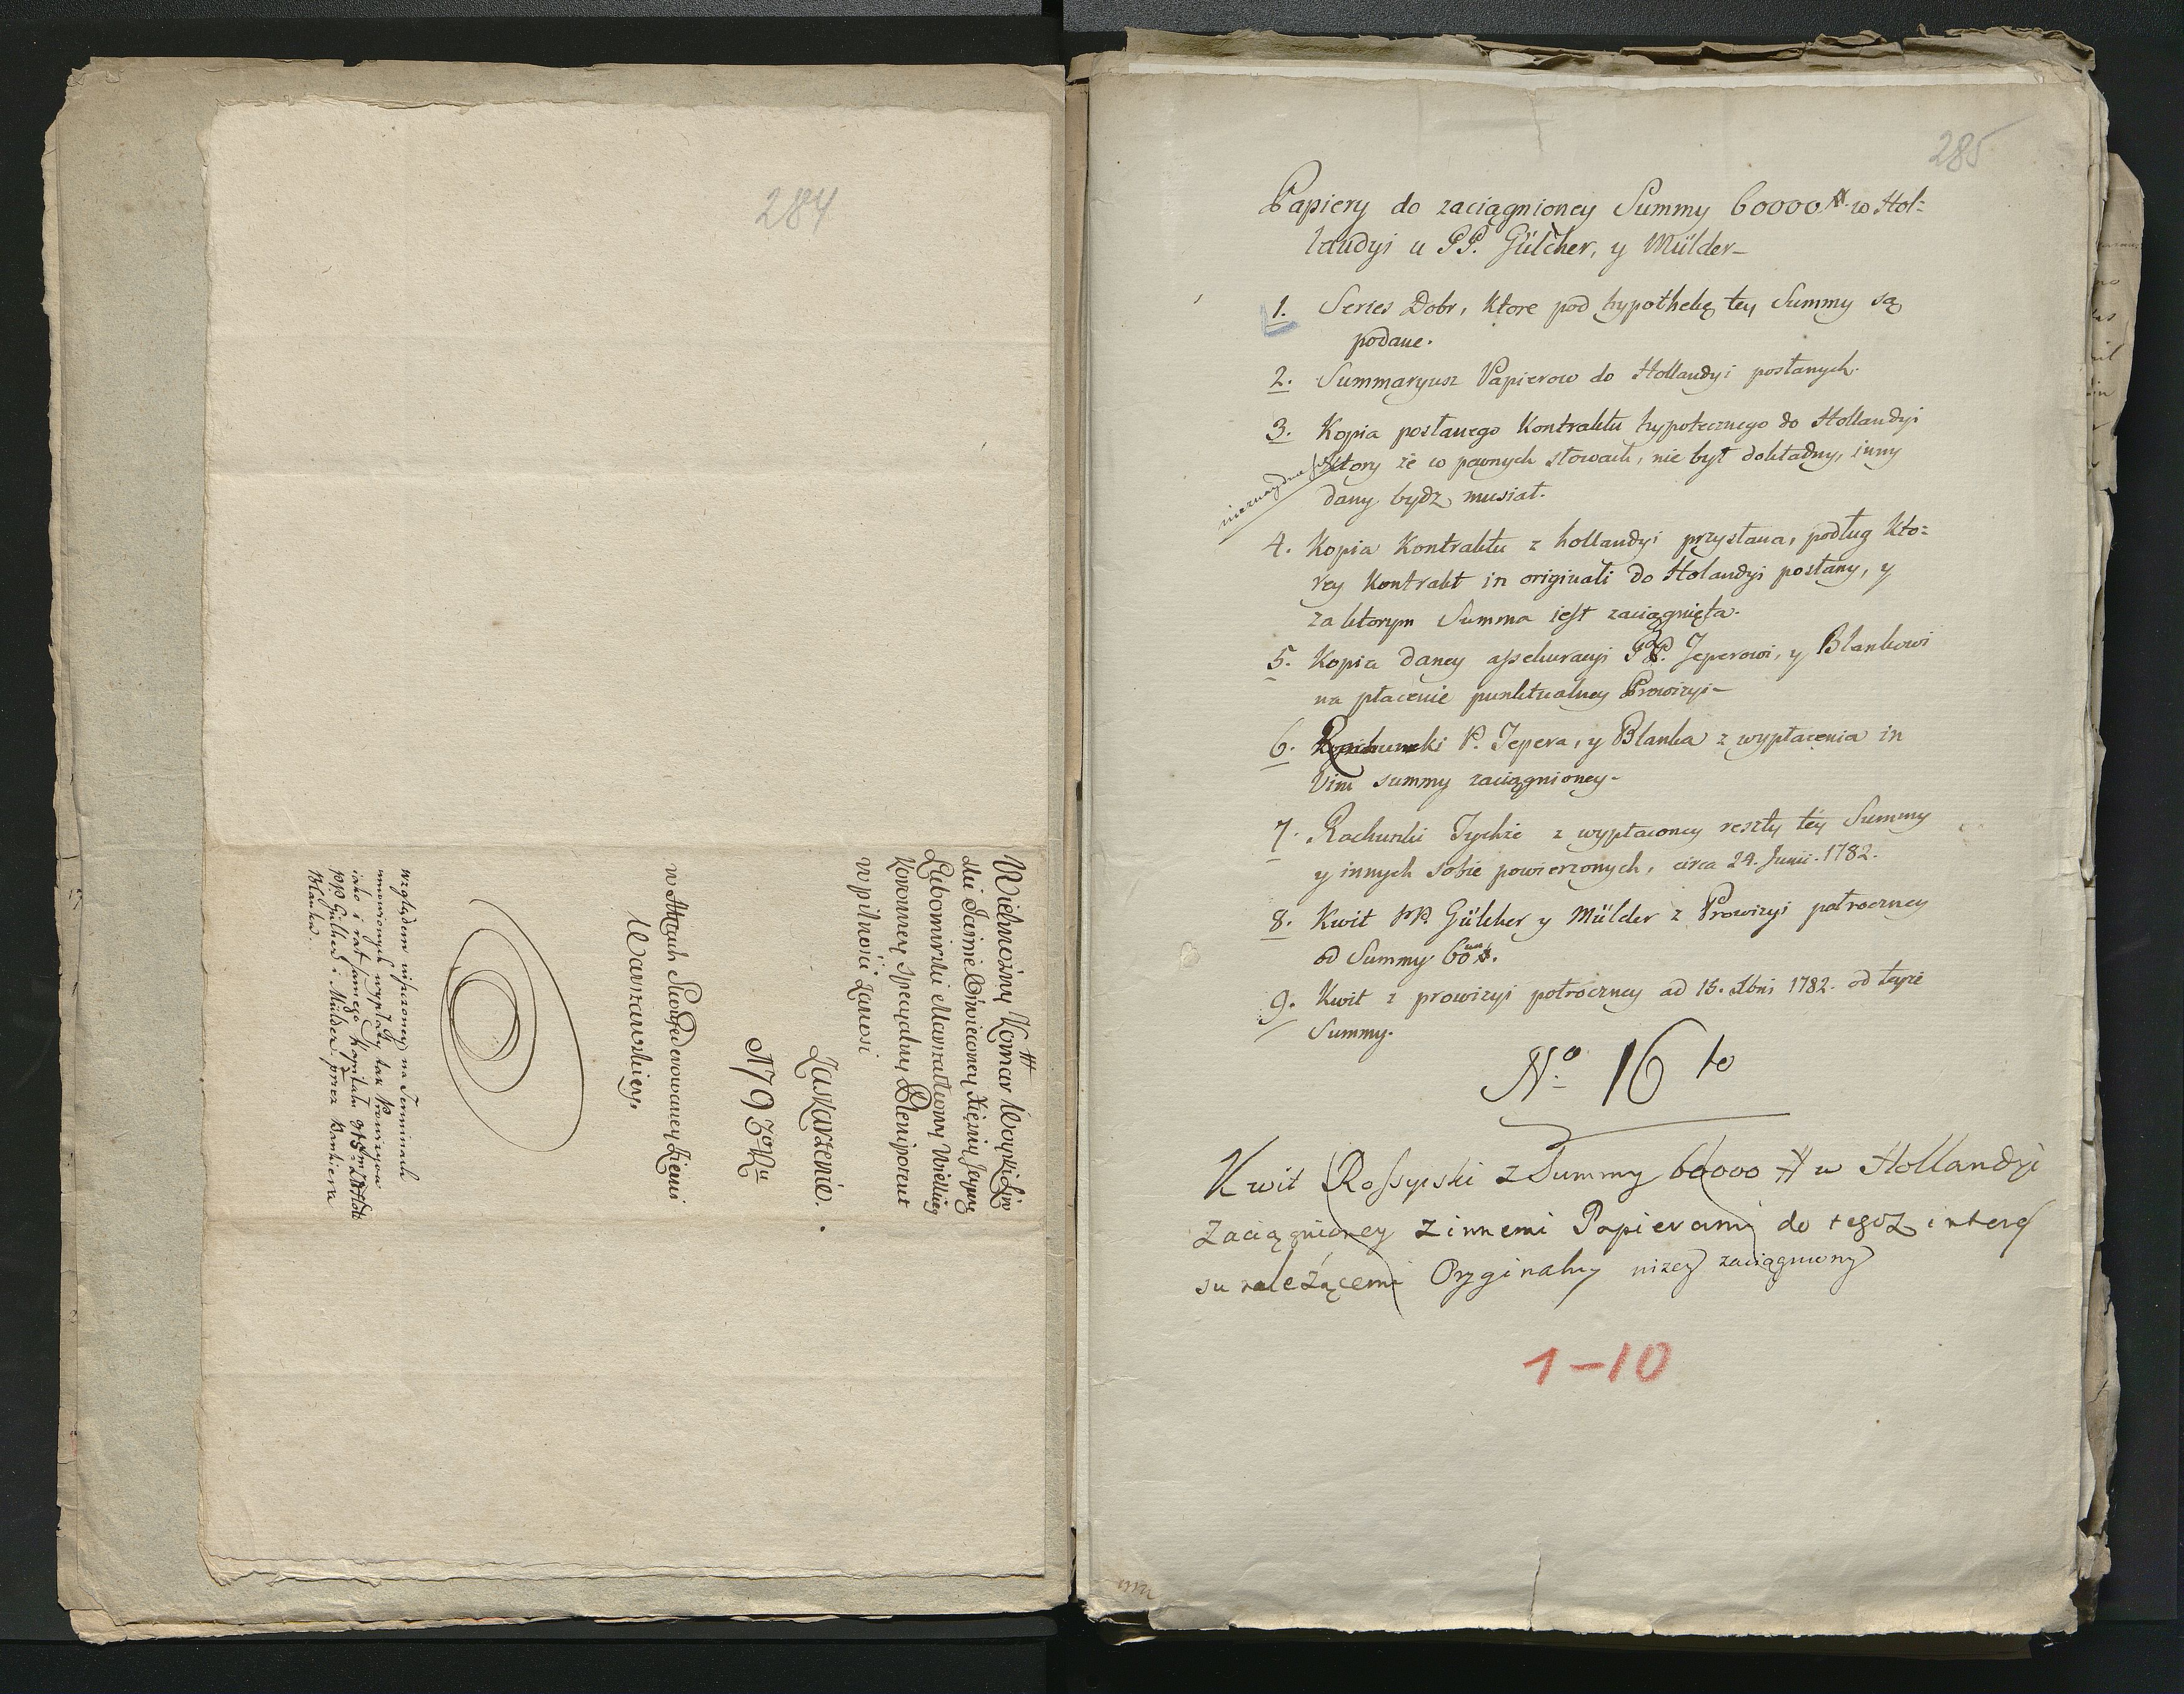 284
Wielmożny Komar Woyski Liw
ski Jaśnie Oświeconey Xiężny Jeymci
Lubomirski Marszałkowy Wielkiey
Koronney Specyalny Plenipotent
w pilności Zanosi
Zaskarżenie.
1793 Rku
w Aktach Skonfederowaney Ziemi
Warszawskiey.
względem uiszczoney na Terminach
umowionych wypłaty tak Prowizyow
iako i rat samego Kapitału
PP. Gülcher i Mülder przez Bankiera
Blanka.
285
Papiery do zaciągnioney Summy 60000 # w Hol=
landyi u PP. Gülcher, y Mülder
1. Series Dobr, ktore pod hypothekę tey Summy są
podane.
2. Summaryusz Papierow do Hollandyi posłanych.
3. Kopia posłanego Kontraktu hypotecznego do Hollandyi
ktory że w pewnych słowach, nie był dokładny, inny
dany bydz musiał.
4. Kopia Kontraktu z hollandyi przysłana, podług kto=
rey Kontrakt in originali do Holandyi posłany, y
za ktorym Summa iest zaciągnięta.
5. Kopia daney assekuracyi PP. Teperowi, y Blankowi
na płacenie punktualney Prowizyi
6. Rachunki P. Tepera, y Blanka z wypłacenia in
Vim summy zaciągnioney
7. Rachunki Tychże z wypłaconey reszty tey Summy
y innych sobie powierzonych, circa 24. Junii. 1782.
8. Kwit PP. Gülcher y Mülder z Prowizyi połroczney
od Summy 60 m #.
9. Kwit z prowizyi połroczney ad 15. Xbris 1782. od teyże
Summy.
No. 16 to
Kwit Rossyiski z Summy 60000 # w Hollandyi
Zaciągnioney z innemi Papierami do tegoz intere
su należącemi Oryginalny nizey zaciągniony
1-10